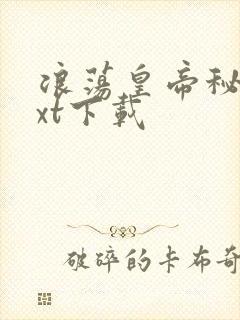 浪荡皇帝秘
xt下載
破碎的卡布奇